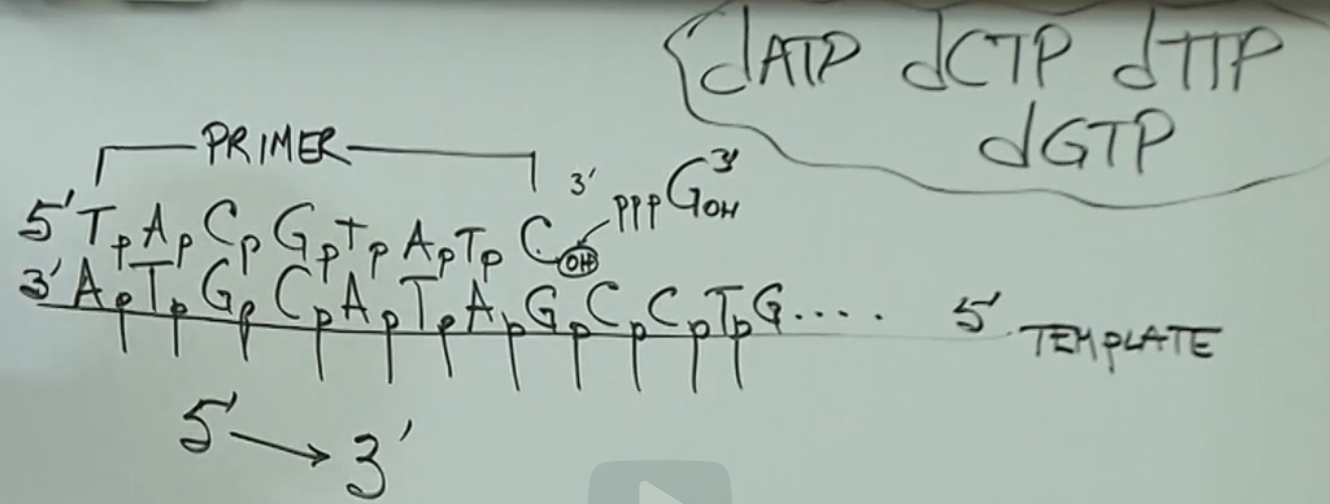 dATP dCTP dTTP
dGTP
PRIMER
3' pppGOH 3'
5' TpApCpGpTpApTpC OH
3' ApTpGpCpApTpApGpCpCpTpG.... 5' TEMPLATE
5' → 3'